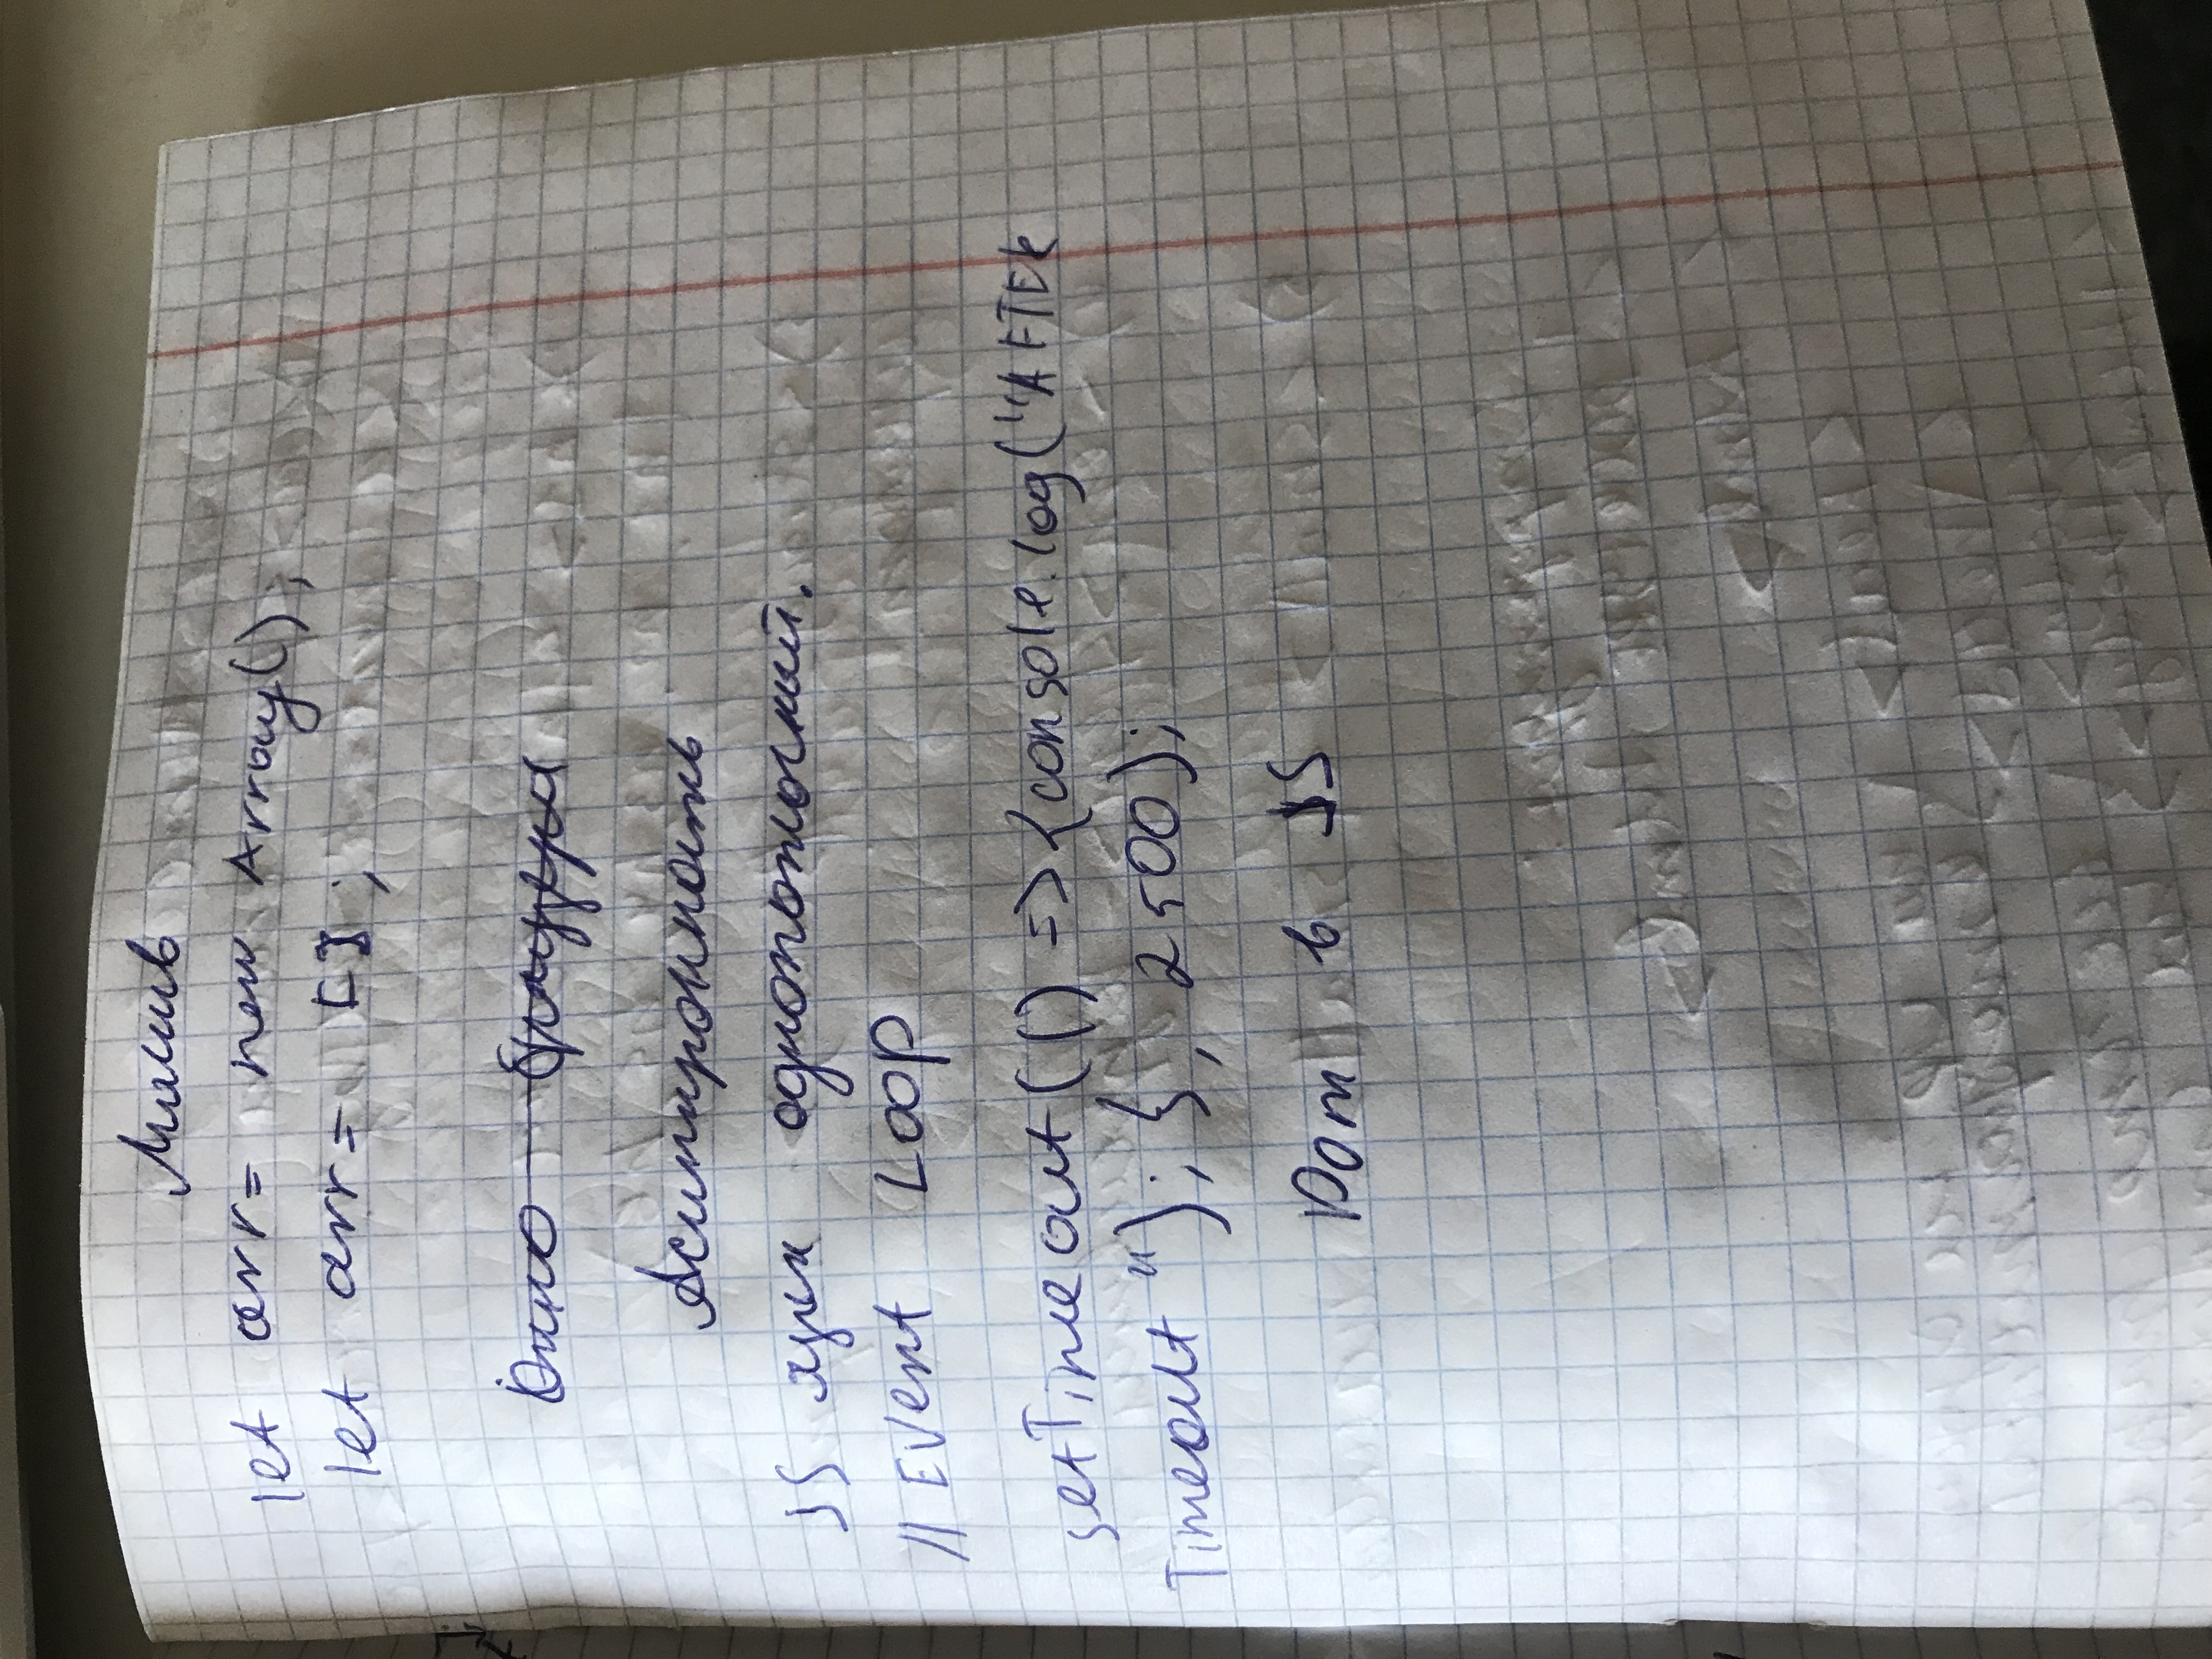 Массив
let arr = new Array();
let arr = [];
Окно браузера
Асинхронность
JS язык однопоточный.
// EVent Loop
setTimeout(() => {console.log("AFTER
Timeout"); }, 2500);
Dom в JS